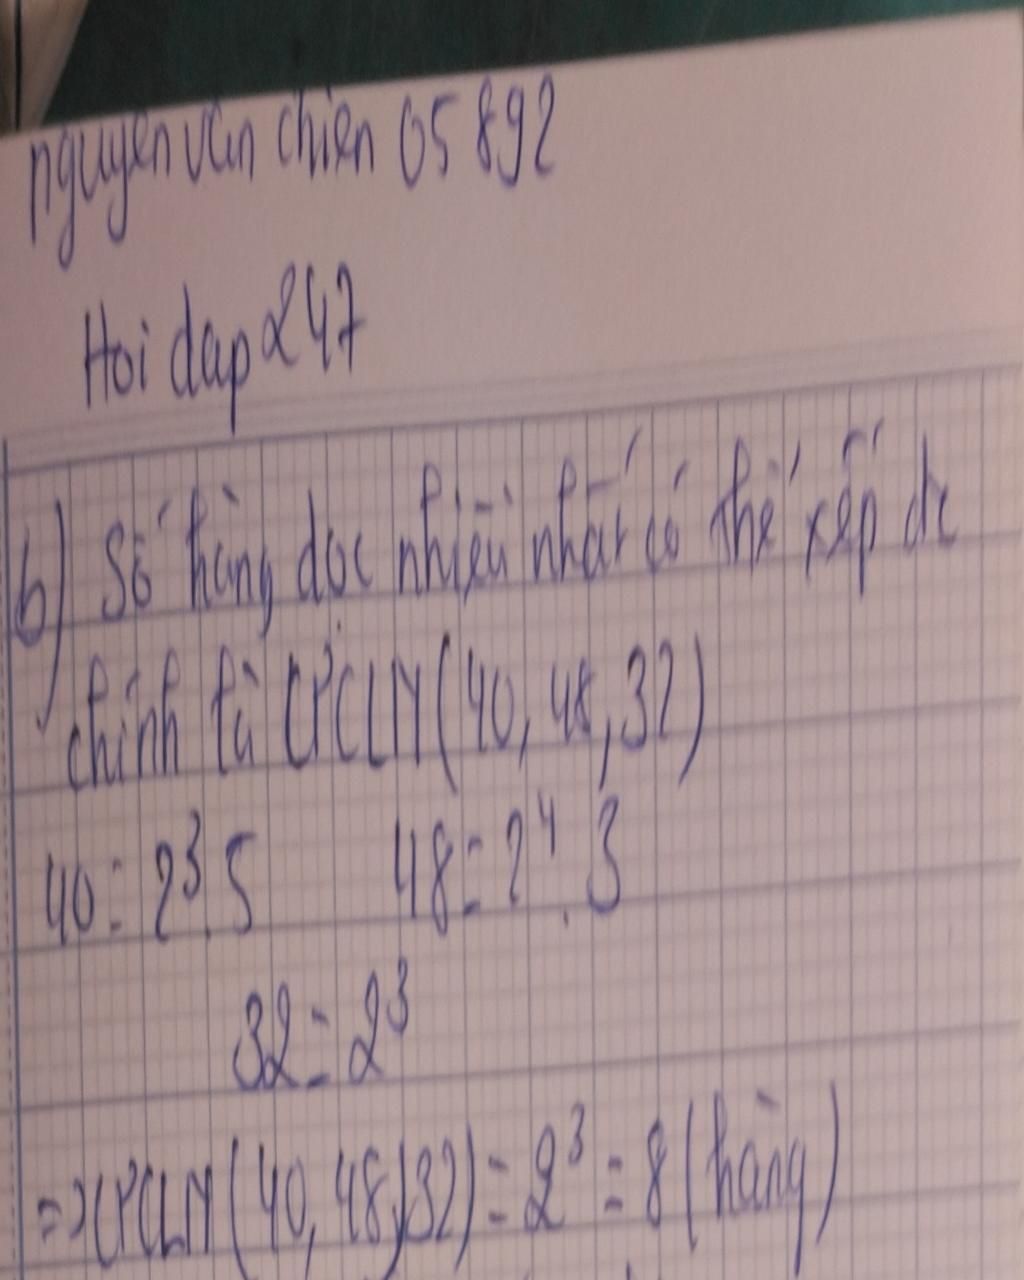 nguyen van chien 05892
Hoi dap 247
b) Số hàng dọc nhiều nhất có thể xếp đc
chính là ƯCLN(40, 48, 32)
40 = 2³.5 48 = 2⁴.3
32 = 2³
=> ƯCLN(40, 48, 32) = 2³ = 8 (hàng)